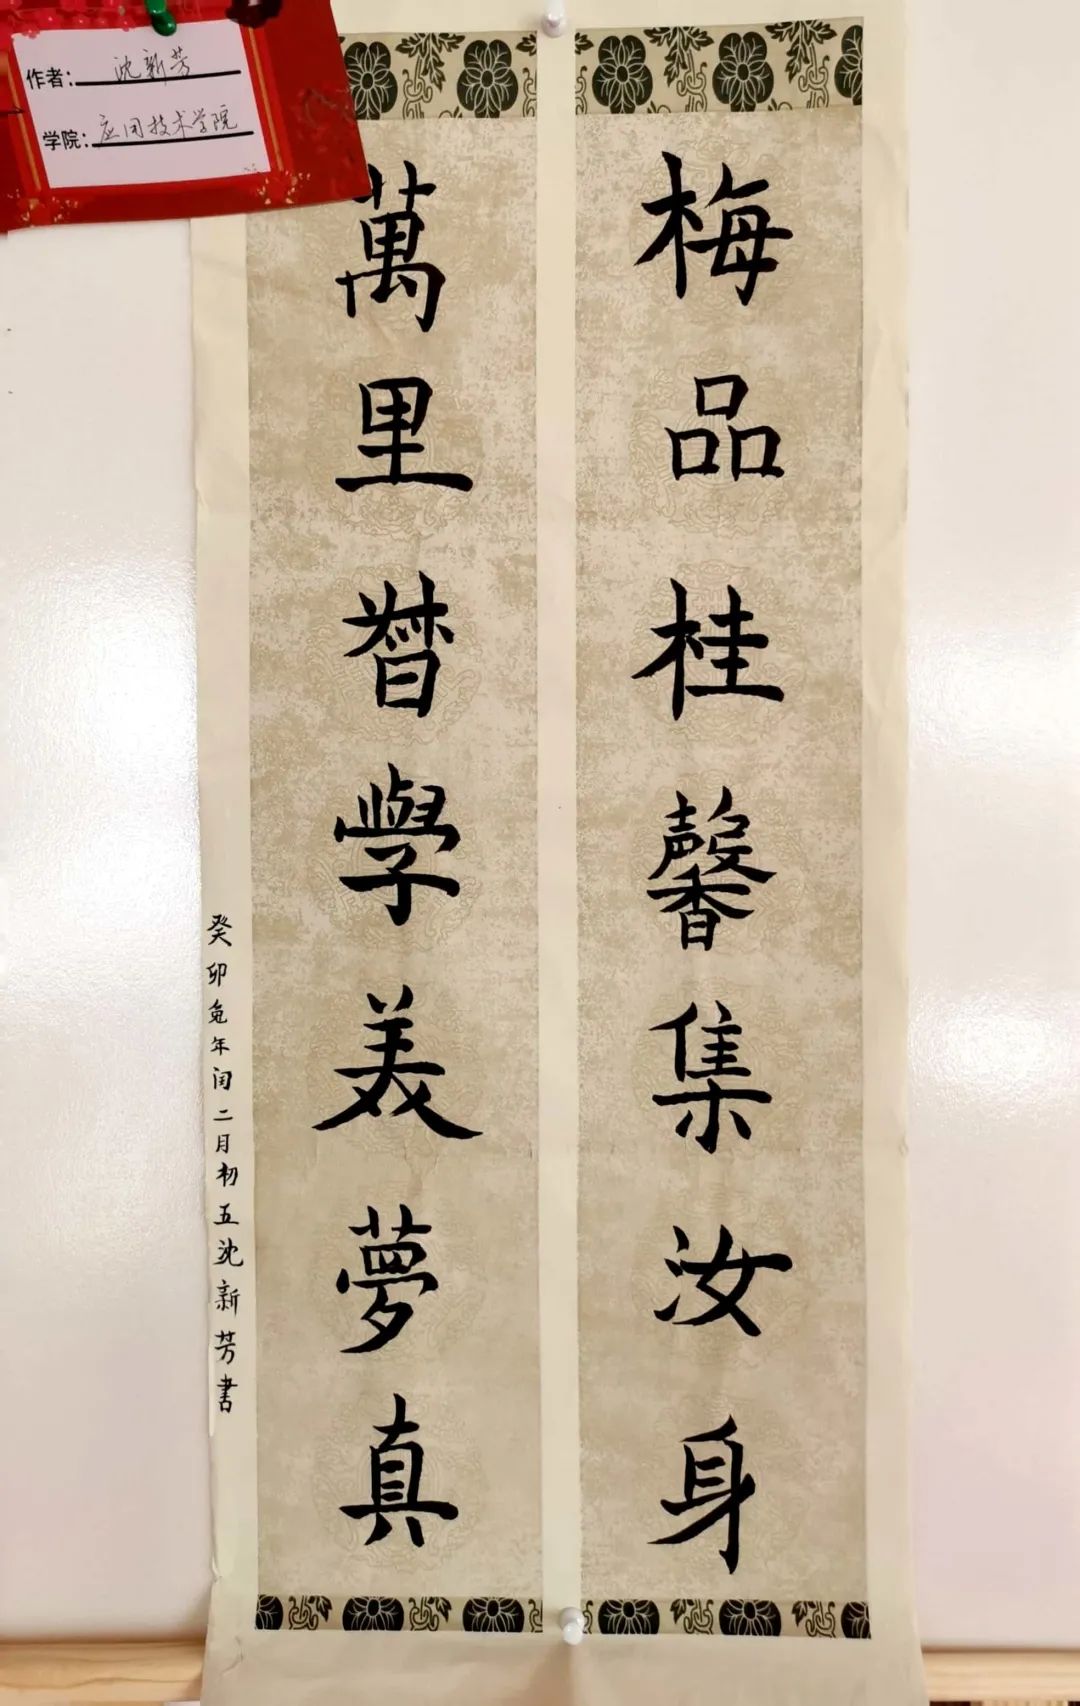 作者：沈新芳
学院：应用技术学院
梅品桂馨集汝身
萬里督學美夢真
癸卯兔年闰二月初五沈新芳書